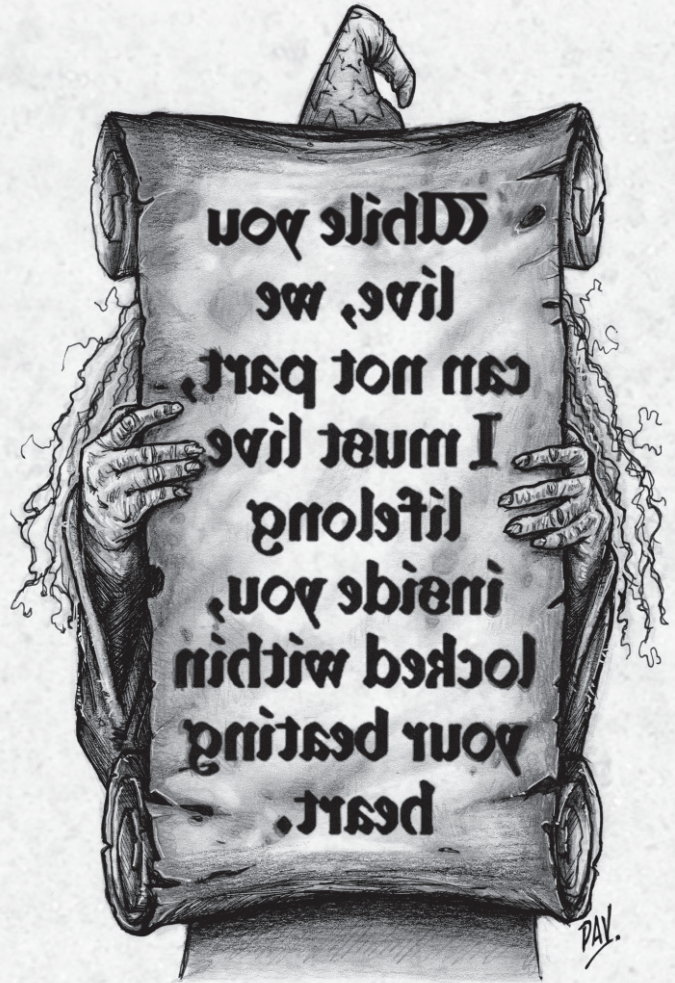 While you
live, we
can not part,
I must live
lifelong
inside you,
locked within
your beating
heart.
DAV.